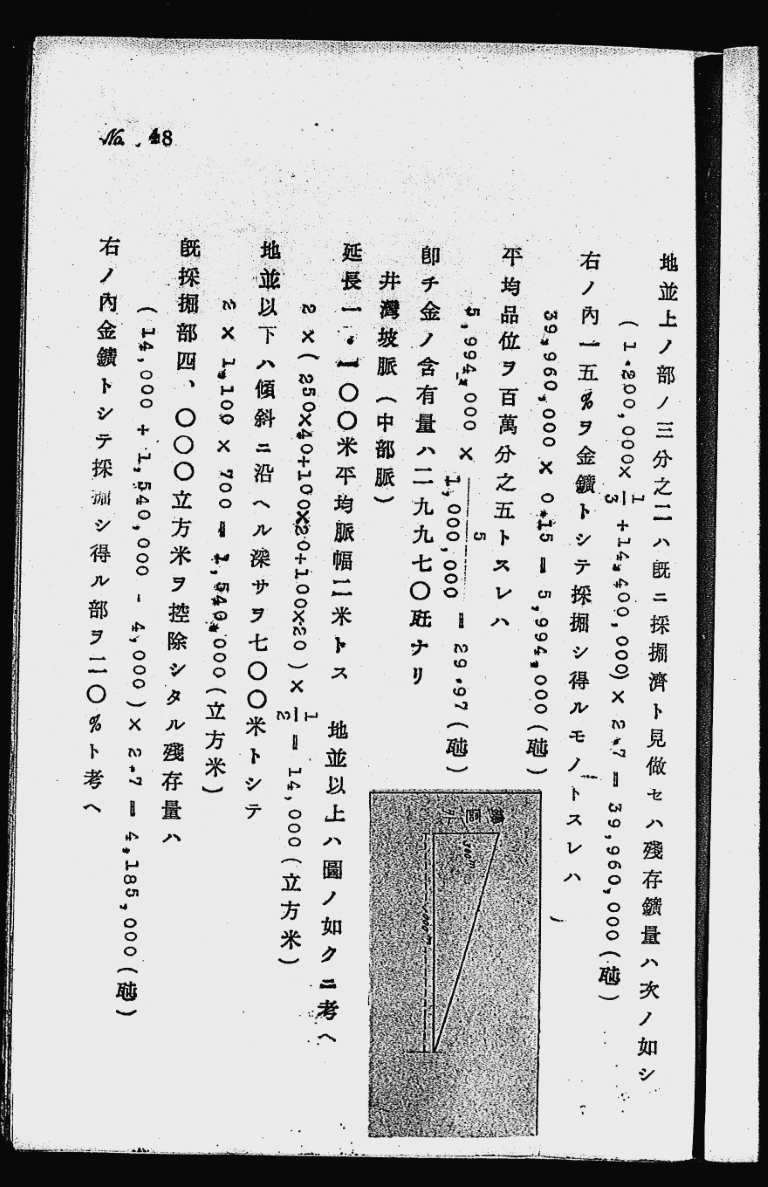 No. 48
地並上ノ部ノ三分之二ハ既ニ採掘濟ト見做セハ殘存鑛量ハ次ノ如シ
(1.200,000×1/3+14,400,000)×2.7=39,960,000(砘)
右ノ內一五%ヲ金鑛トシテ採掘シ得ルモノトスレハ
39,960,000×0.15=5,994,000(砘)
平均品位ヲ百萬分之五トスレハ
5,994,000×5/1,000,000=29.97(砘)
卽チ金ノ含有量ハ二九九七〇瓩ナリ
井灣坡脈(中部脈)
延長一.一〇〇米平均脈幅二米トス 地並以上ハ圖ノ如クニ考ヘ
2×(250×40+100×20+100×20)×1/2=14,000(立方米)
地並以下ハ傾斜ニ沿ヘル深サヲ七〇〇米トシテ
2×1,100×700=1,540,000(立方米)
既採掘部四、〇〇〇立方米ヲ控除シタル殘存量ハ
(14,000+1,540,000-4,000)×2.7=4,185,000(砘)
右ノ內金鑛トシテ採掘シ得ル部ヲ二〇%ト考ヘ